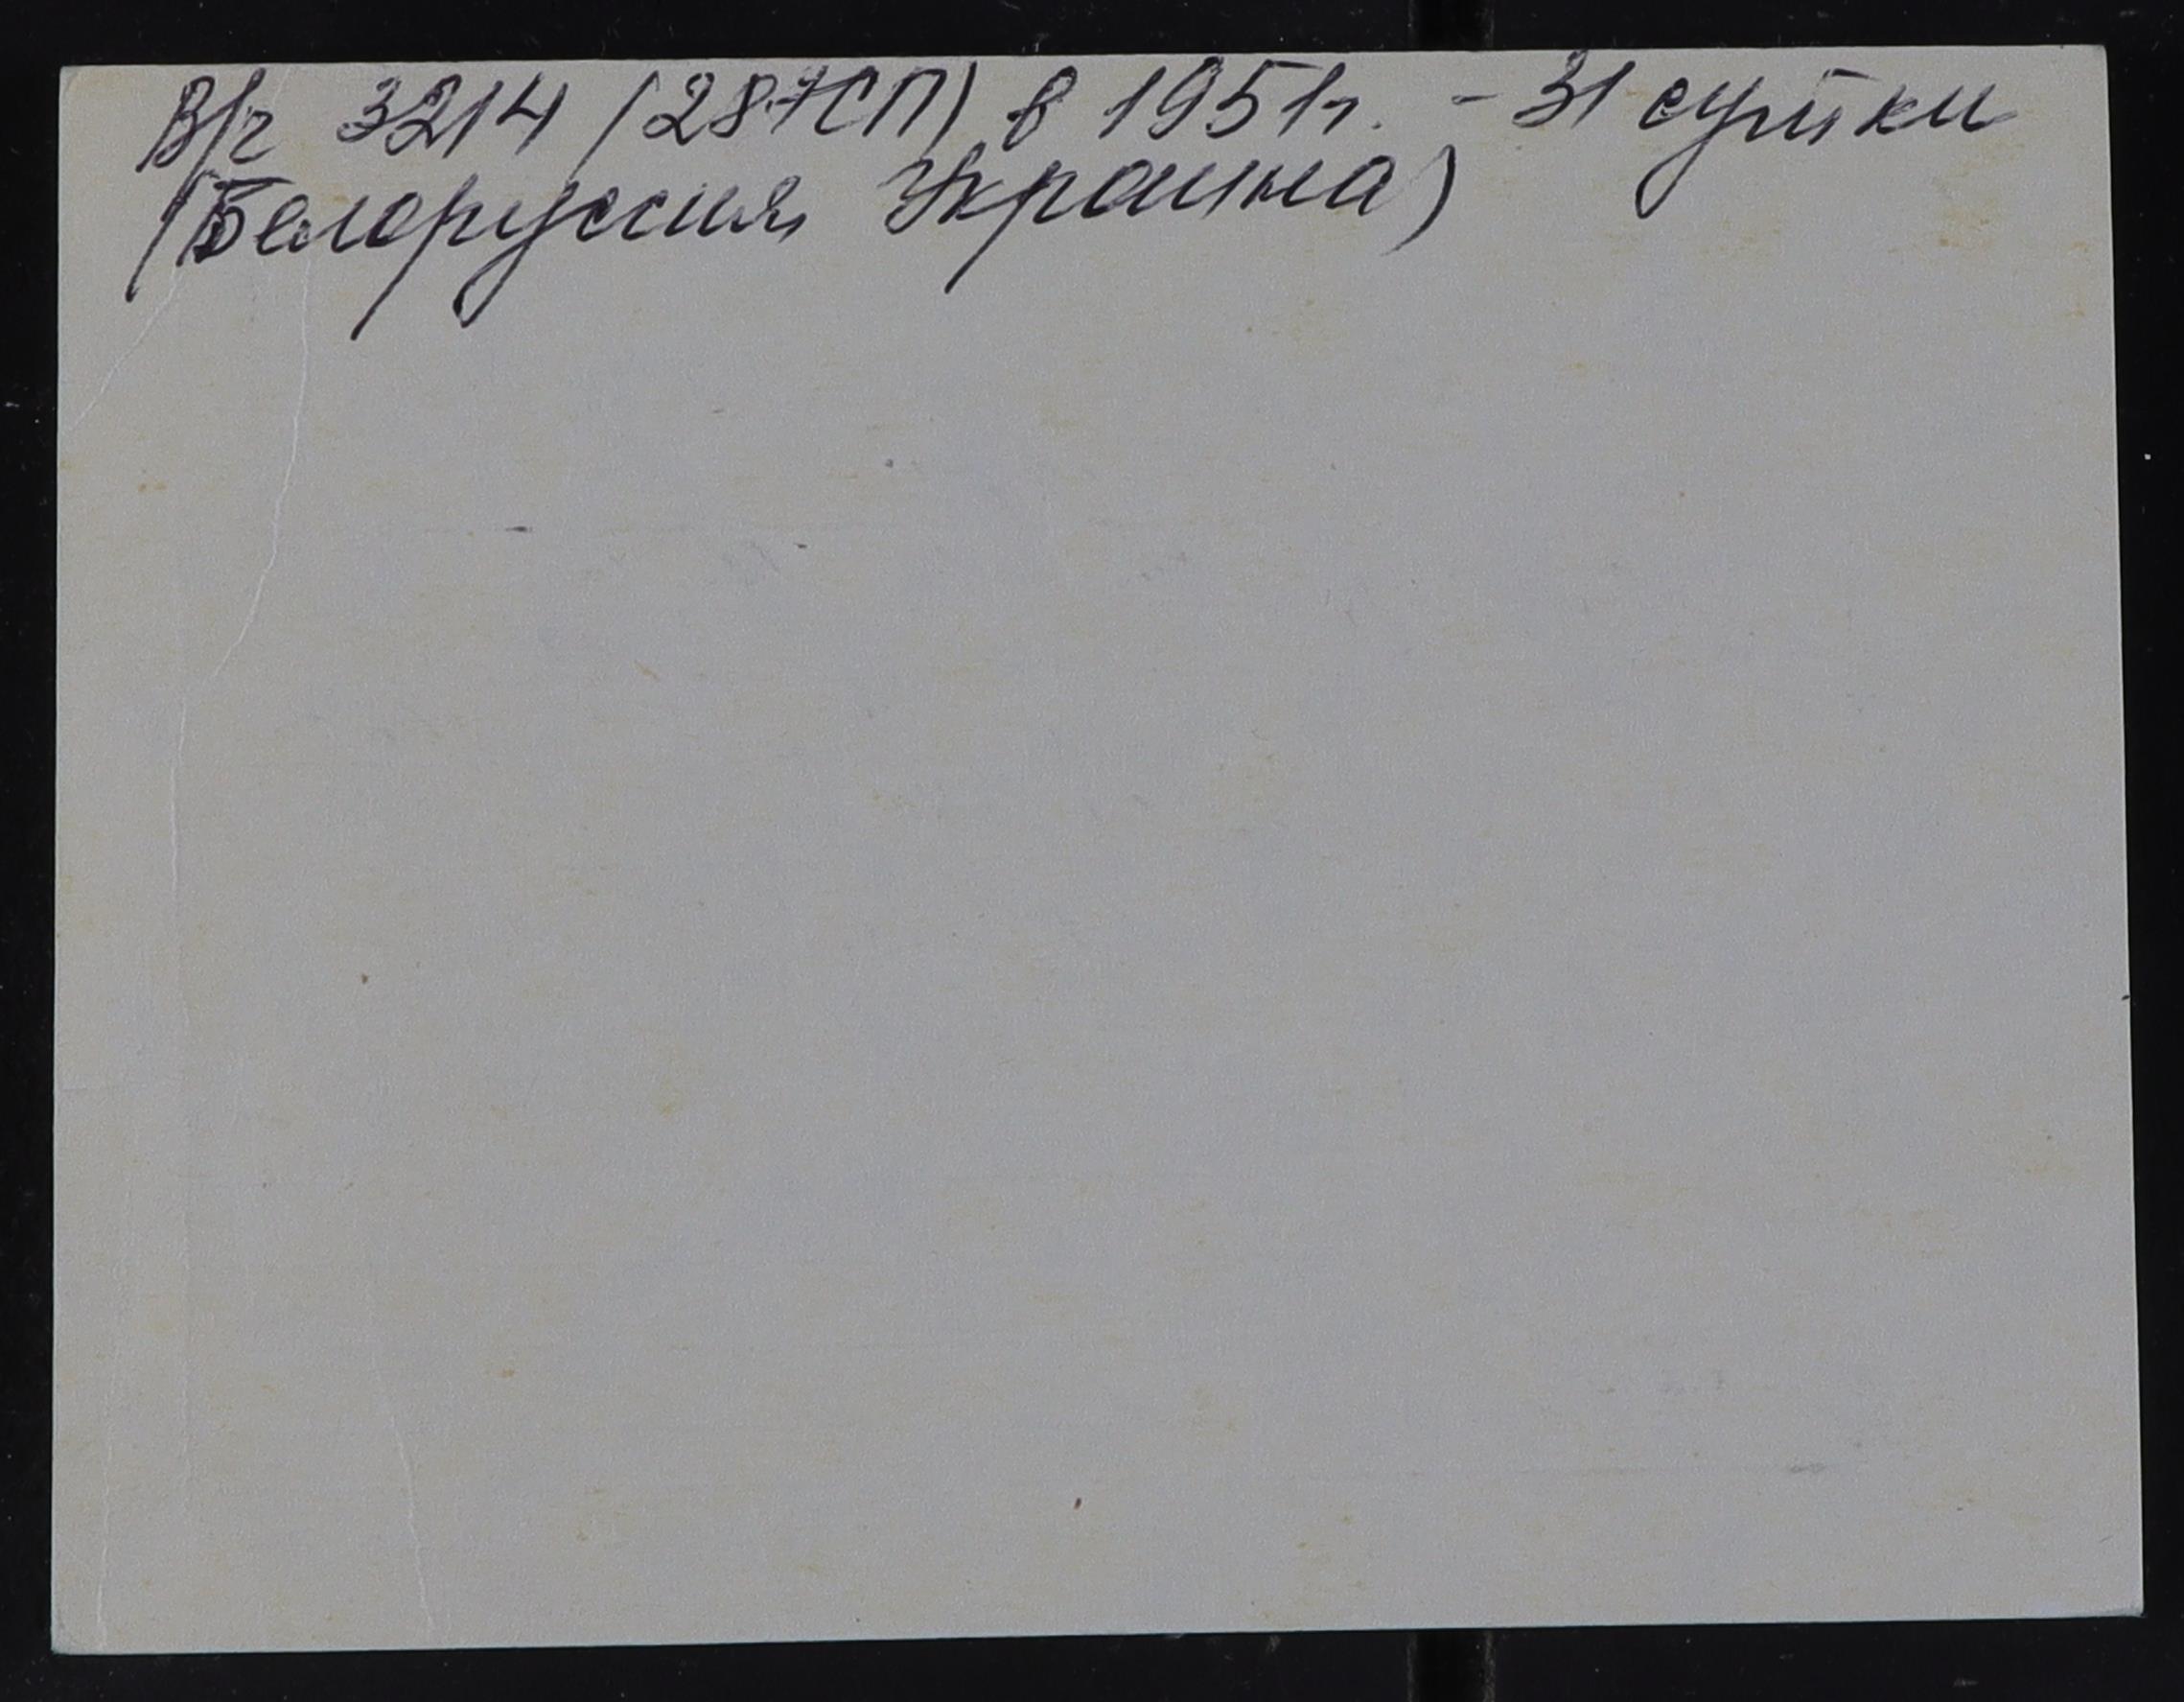 В/ч 3214 (287СП) в 1951г. - 31 сутки
(Белоруссия, Украина)